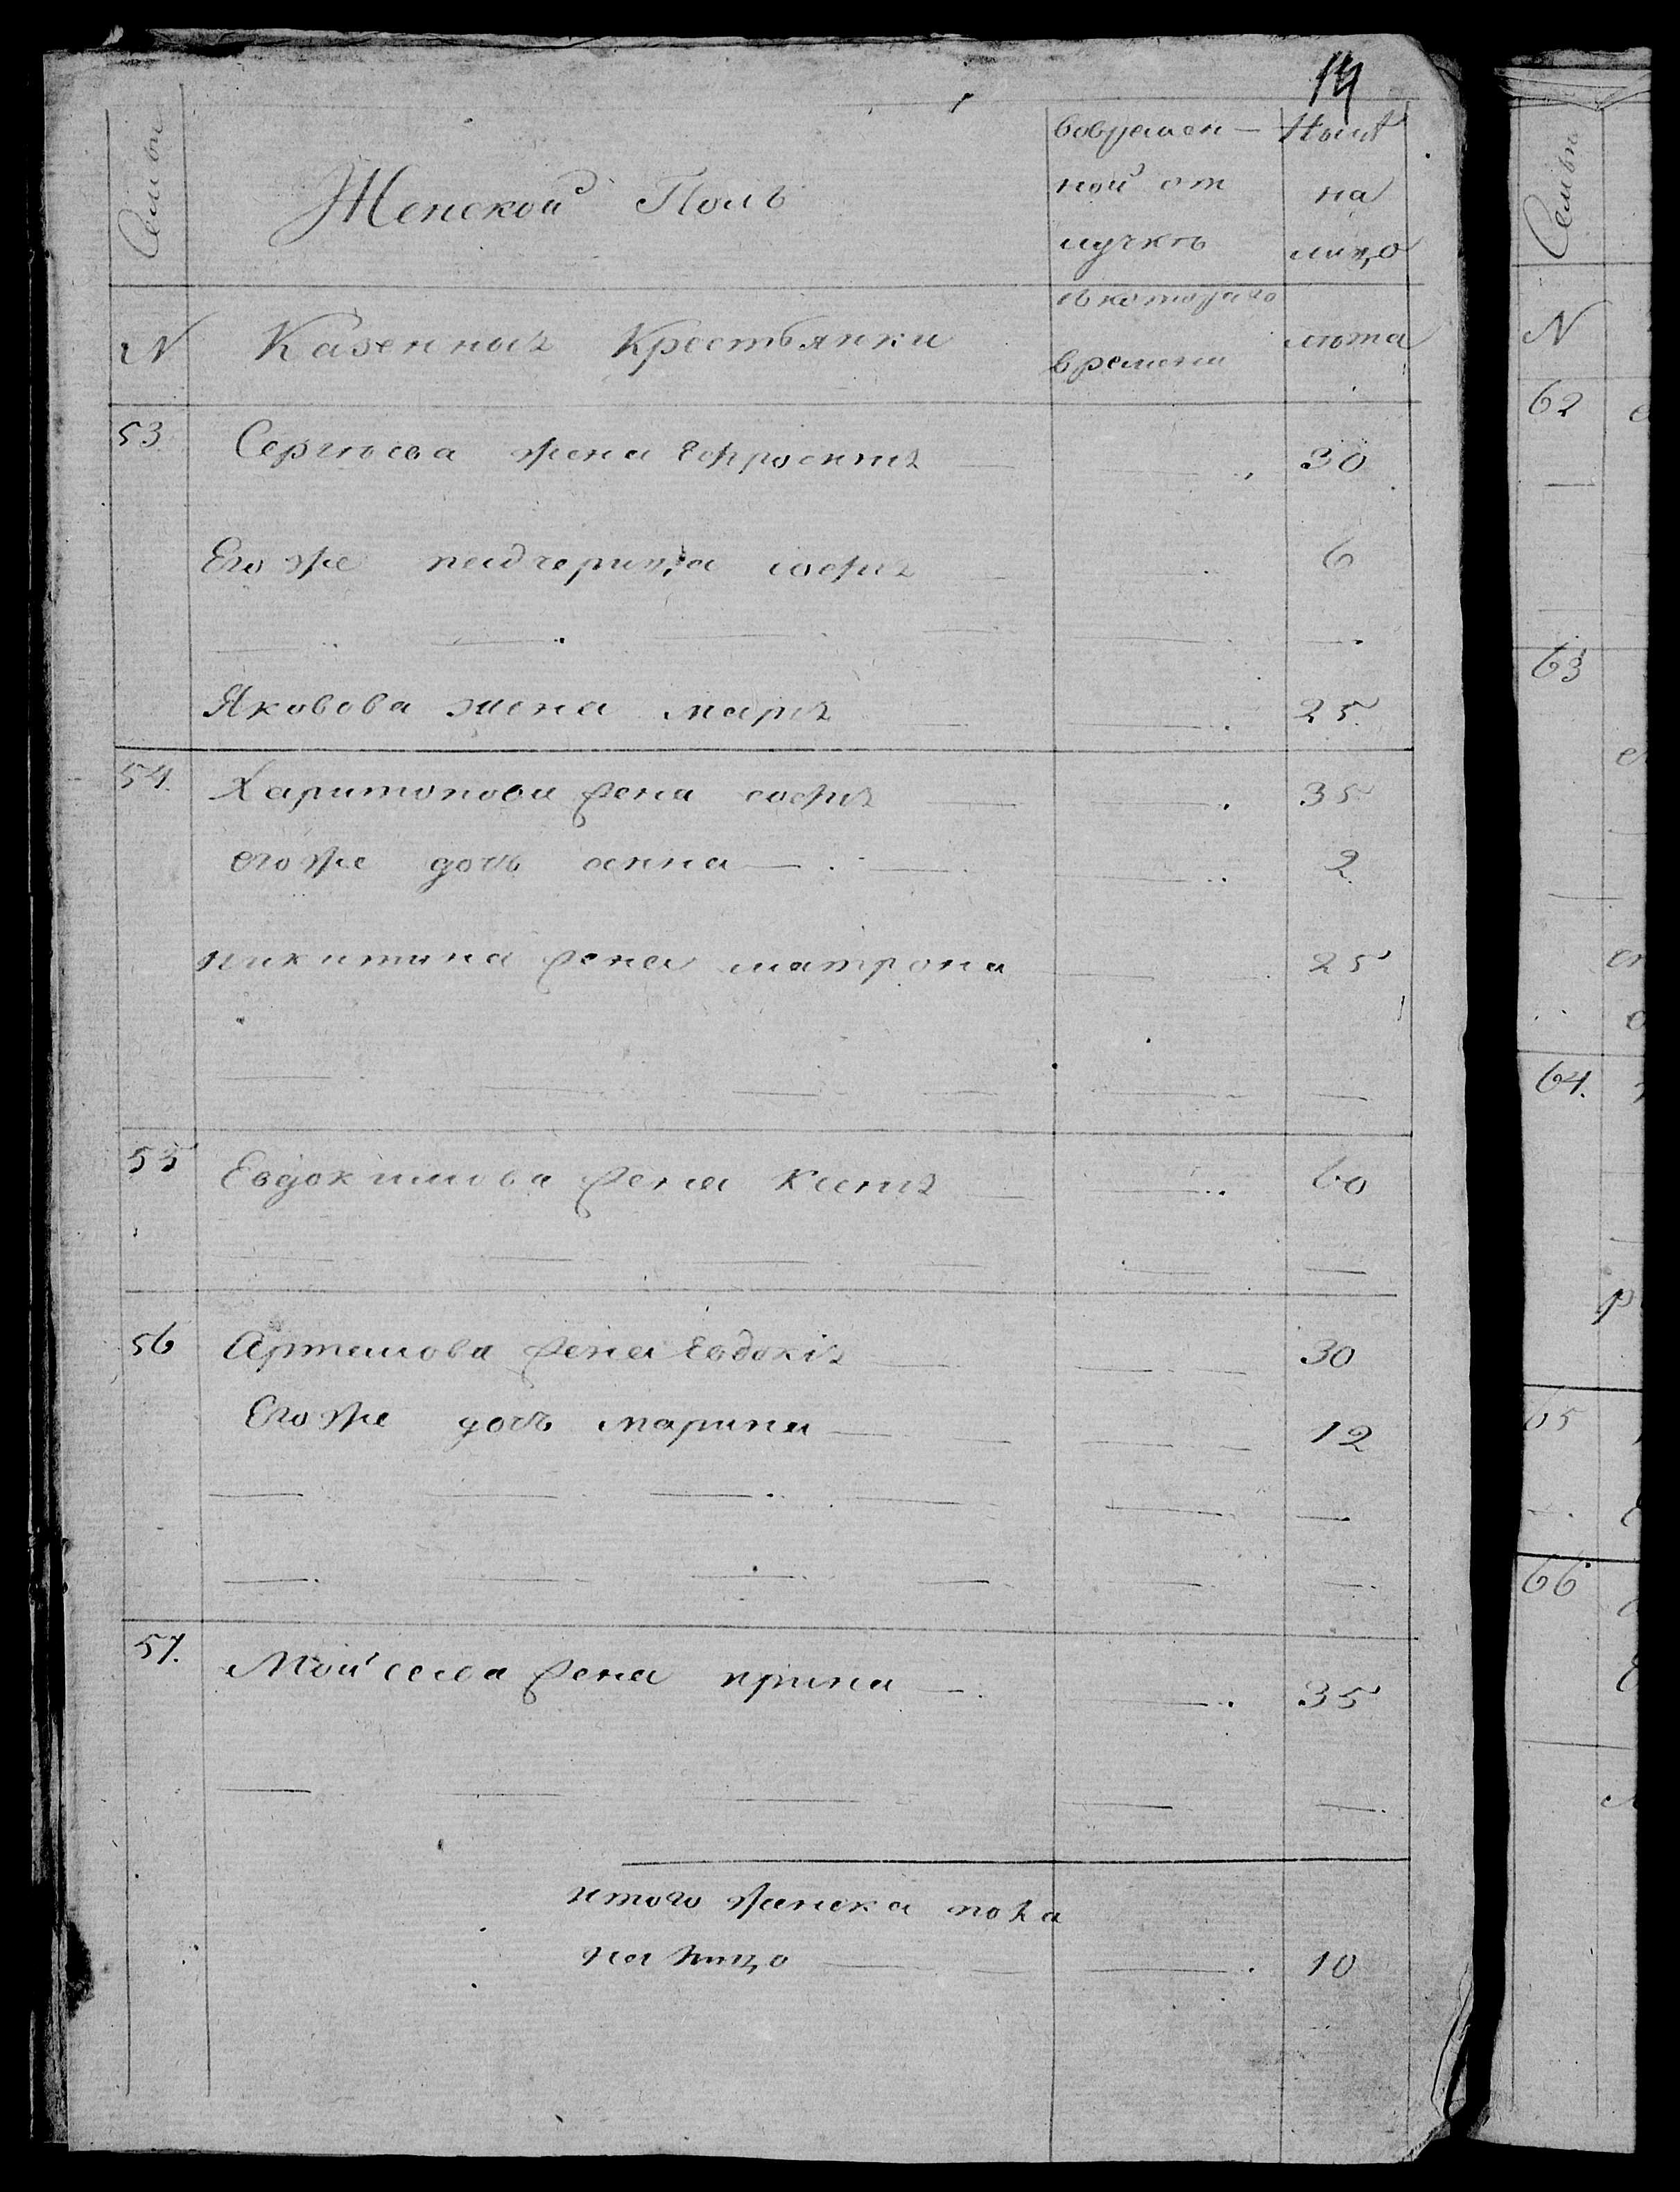 14
Семьи
Женской Полъ
вовремен-
ной от
лучкѣ
Нынѣ
на
лицо
N
Казенныя Крестьянки
съ котораго
времени
лѣта
53. Сергѣева жена Ефросиния 30
Его же падчерица софия 6
Яковова жена мария 25.
54. Харитонова жена софия 35
его же дочь анна 2
никитина жена матрона 25
55 Евдокимова жена Ксения 60
56 Артемова жена Евдокія 30
Его же дочь марина 12
57. Мойсеева жена ирина 35
итого женска пола
на лицо 10
Семьи
N
62
63
64.
65
66